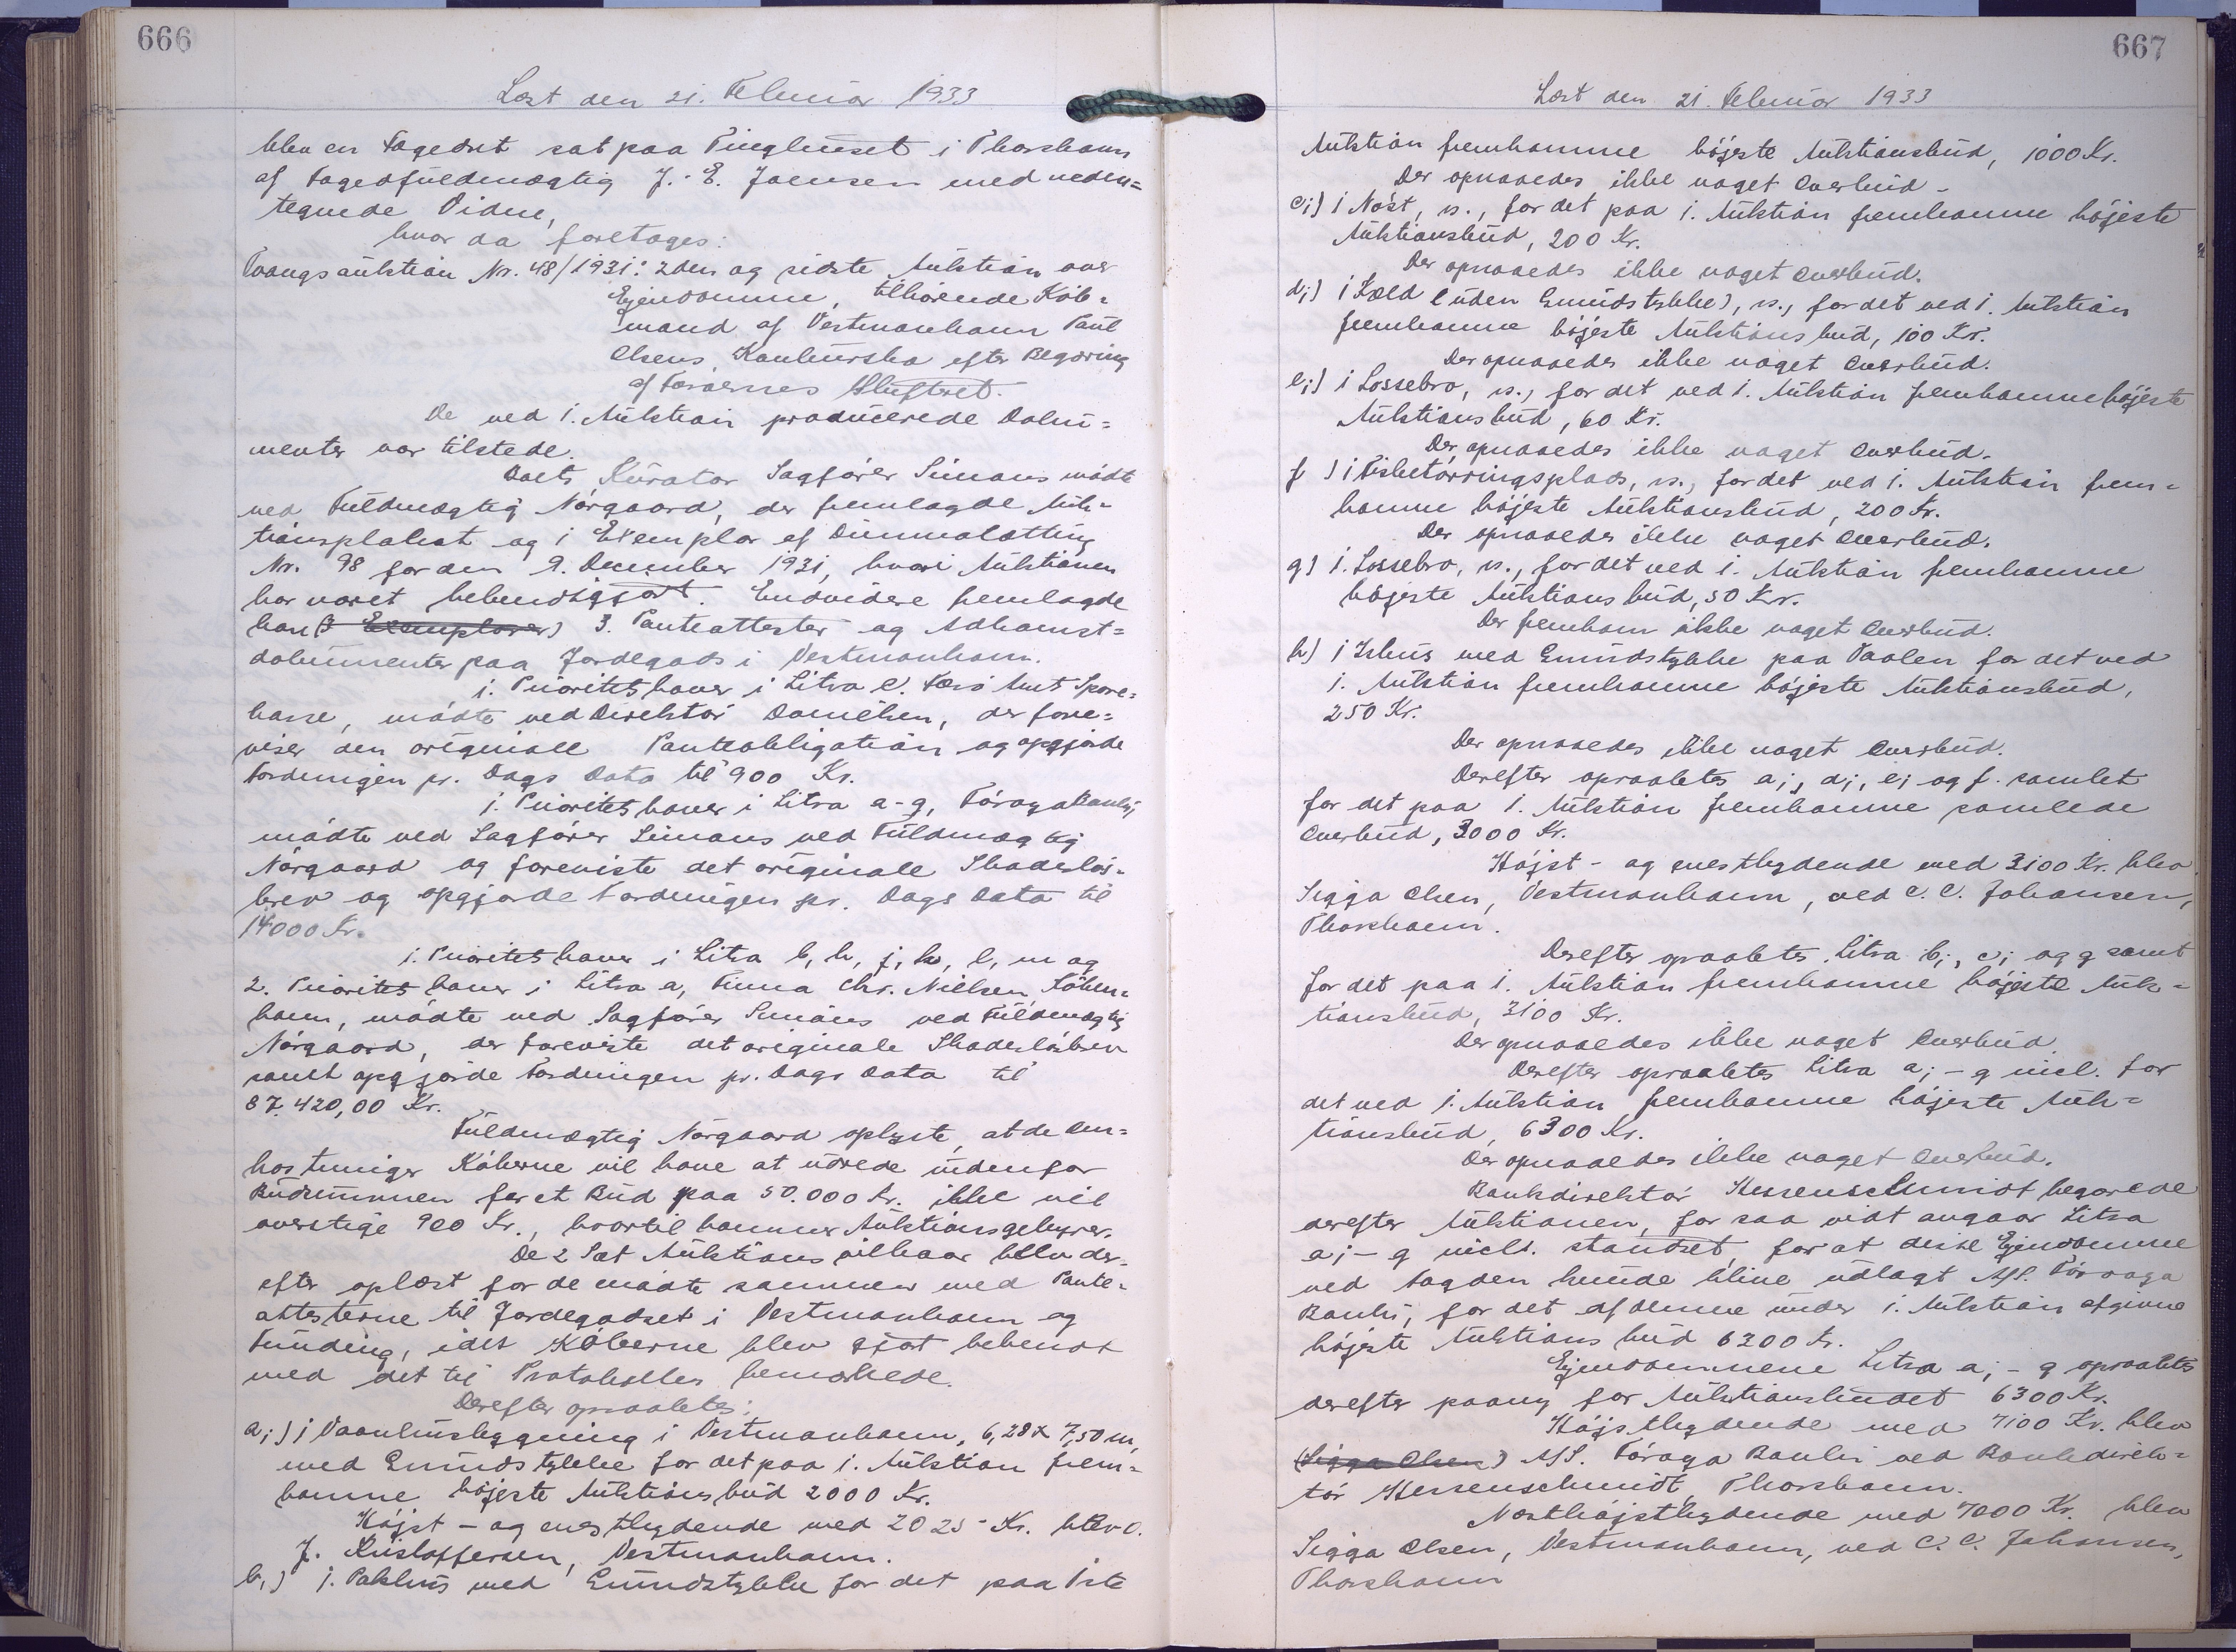 666
Læst den 21. Februar 1933
blev en Fogedret sat paa Tinghuset i Thorshavn
af Fogedfuldmægtig J. E. Joensen med neden=
tegnede Vidne,
hvor da foretages:
Tvangsauktion Nr. 48/1931: 2den og sidste Auktion over
Ejendomme, tilhørende Køb=
mand af Vestmanhavn Paul
Olsens Konkursbo efter Begæring
af Færøernes Skifteret.
De ved 1. Auktion producerede Doku=
menter var tilstede.
Boets Kurator Sagfører Simons mødte
ved Fuldmægtig Nørgaard, der fremlagde Auk=
tionsplakat og 1 Exemplar af Dimmalætting
Nr. 98 for den 9. December 1931, hvori Auktionen
har været bekendtgjort. Endvidere fremlagde
han (3 Exemplarer) 3. Panteattester og Adkomst=
dokumenter paa Jordegods i Vestmanhavn.
1. Prioritetshaver i Litra c. Færø Amt Spare=
kasse, mødte ved Direktør Danielsen, der fore=
viser den originale Panteobligation og opgjorde
Fordringen pr. Dags Dato til 900 Kr.
1. Prioritetshaver i Litra a-g, Føroya Banki,
mødte ved Sagfører Simons ved Fuldmægtig
Nørgaard og foreviste det originale Skadesløs=
brev og opgjorde Fordringen pr. Dags Dato til
14000 Kr.
1. Prioritetshaver i Litra b, h, j, k, l, m og
2. Prioritetshaver i Litra a, Firma Chr. Nielsen, Köben=
havn, mødte ved Sagfører Simons ved Fuldmægtig
Nørgaard, der foreviste det originale Skadesløsbrev
samt opgjorde Fordringen pr. Dags Dato til
87.420,00 Kr.
Fuldmægtig Nørgaard oplyste, at de Om=
kostninger Køberne vil have at udrede udenfor
Budsummen for et Bud paa 50.000 Kr. ikke vil
overstige 900 Kr., hvortil kommer Auktionsgebyrer.
De 2 Sæt Auktionsvilkaar blev der=
efter oplæst for de mødte sammen med Pante=
attesterne til Jordegodset i Vestmanhavn og
Funding, idet Køberne blev gjort bekendt
med det til Protokollen bemærkede.
Derefter opraabtes:
a,) 1 Vaanhusbygning i Vestmanhavn, 6,28 x 7,50 m,
med Grundstykke for det paa 1. Auktion frem=
komne højeste Auktionsbud 2000 Kr.
Højst - og enestbydende med 2025 - Kr. blev O.
J. Kristoffersen, Vestmanhavn.
b,) 1. Pakhus med Grundstykke for det paa 1ste
667
Læst den 21. Februar 1933
Auktion fremkomne højeste Auktionsbud, 1000 Kr.
Der opnaaedes ikke noget Overbud -
c,) 1 Nøst, is., for det paa 1. Auktion fremkomne højeste
Auktionsbud, 200 Kr.
Der opnaaedes ikke noget Overbud.
d,) 1 Kæld (uden Grundstykke), is., for det ved 1. Auktion
fremkomne højeste Auktionsbud, 100 Kr.
Der opnaaedes ikke noget Overbud.
e,) 1 Lossebro, is., for det ved 1. Auktion fremkomne højeste
Auktionsbud, 60 Kr.
Der opnaaedes ikke noget Overbud.
f ) 1 Fisketørringsplads, is., for det ved 1. Auktion frem=
komne højeste Auktionsbud, 200 Kr.
Der opnaaedes ikke noget Overbud.
g) 1. Lossebro, is., for det ved 1. Auktion fremkomne
højeste Auktionsbud, 50 Kr.
Der fremkom ikke noget Overbud.
h) 1 Ishus med Grundstykke paa Vaalen for det ved
1. Auktion fremkomne højeste Auktionsbud,
250 Kr.
Der opnaaedes ikke noget Overbud.
Derefter opraabtes a,, d,, e, og f. samlet
for det paa 1. Auktion fremkomne samlede
Overbud, 3000 Kr.
Højst - og enestbydende med 3100 Kr. blev
Sigga Olsen, Vestmanhavn, ved C. C. Johansen,
Thorshavn.
Derefter opraabtes Litra b,, c, og g samt
for det paa 1. Auktion fremkomne højeste Auk=
tionsbud, 3100 Kr.
Der opnaaedes ikke noget Overbud.
Derefter opraabtes Litra a, - g incl. for
det ved 1. Auktion fremkomne højeste Auk=
tionsbud, 6300 Kr.
Der opnaaedes ikke noget Overbud.
Bankdirektør Kessenschmidt begærede
derefter Auktionen, for saa vidt angaar Litra
a, - g incls. standset, for at disse Ejendomme
ved Fogden kunde blive udlagt A/S. Föroya
Banki, for det af denne under 1. Auktion afgivne
højeste Auktionsbud 6300 Kr.
Ejendommene Litra a, - g opraabtes
derefter paany for Auktionsbudet 6300 Kr.
Højstbydende med 7100 Kr. blev
(Sigga Olsen) A/S. Föroya Banki ved Bankdirek=
tør Kessenschmidt, Thorshavn.
Næsthøjstbydende med 7000 Kr. blev
Sigga Olsen, Vestmanhavn, ved C. C. Johansen,
Thorshavn